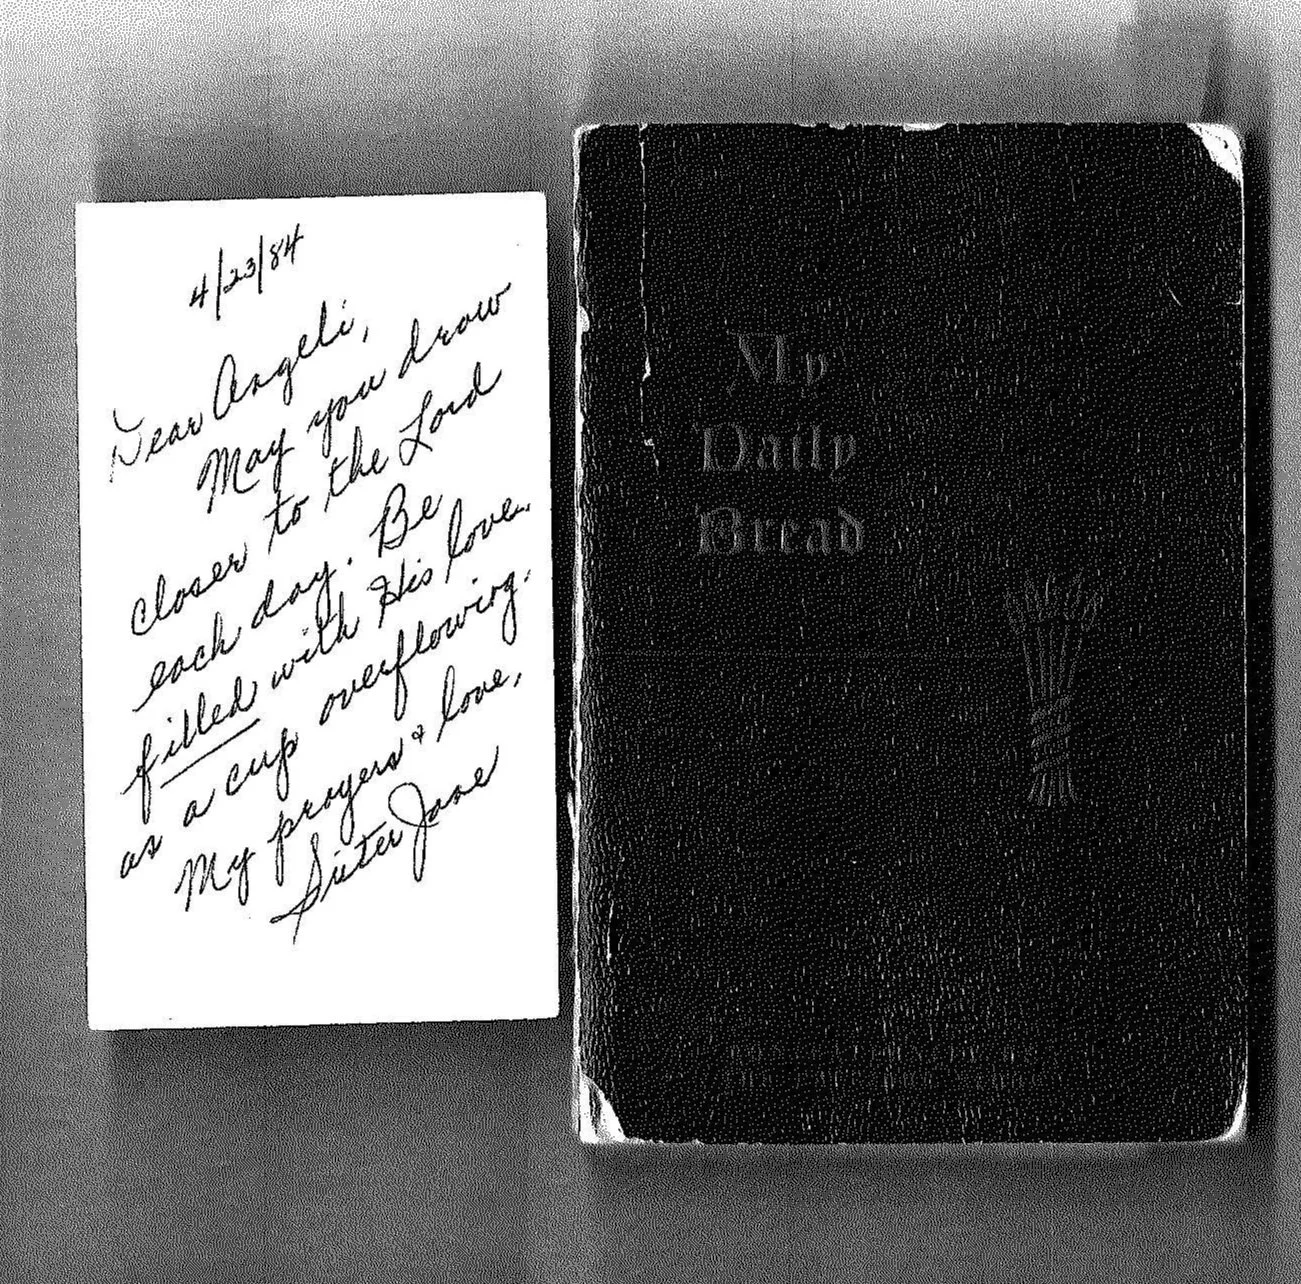 4/23/84
Dear Angeli,
May you draw
closer to the Lord
each day. Be
filled with His love,
as a cup overflowing.
My prayers & love,
Sister Jane
My
Daily
Bread